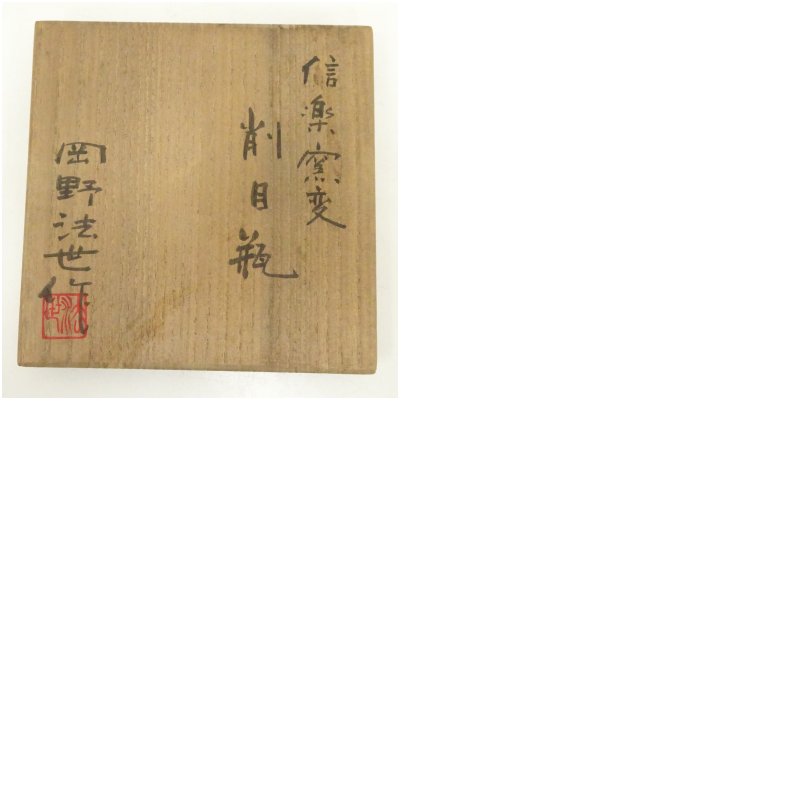 信楽窯変
削目瓶
岡野法世作